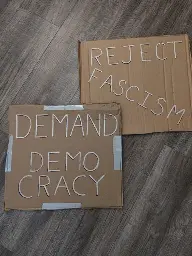 REJECT
FASCISM
DEMAND
DEMO
CRACY